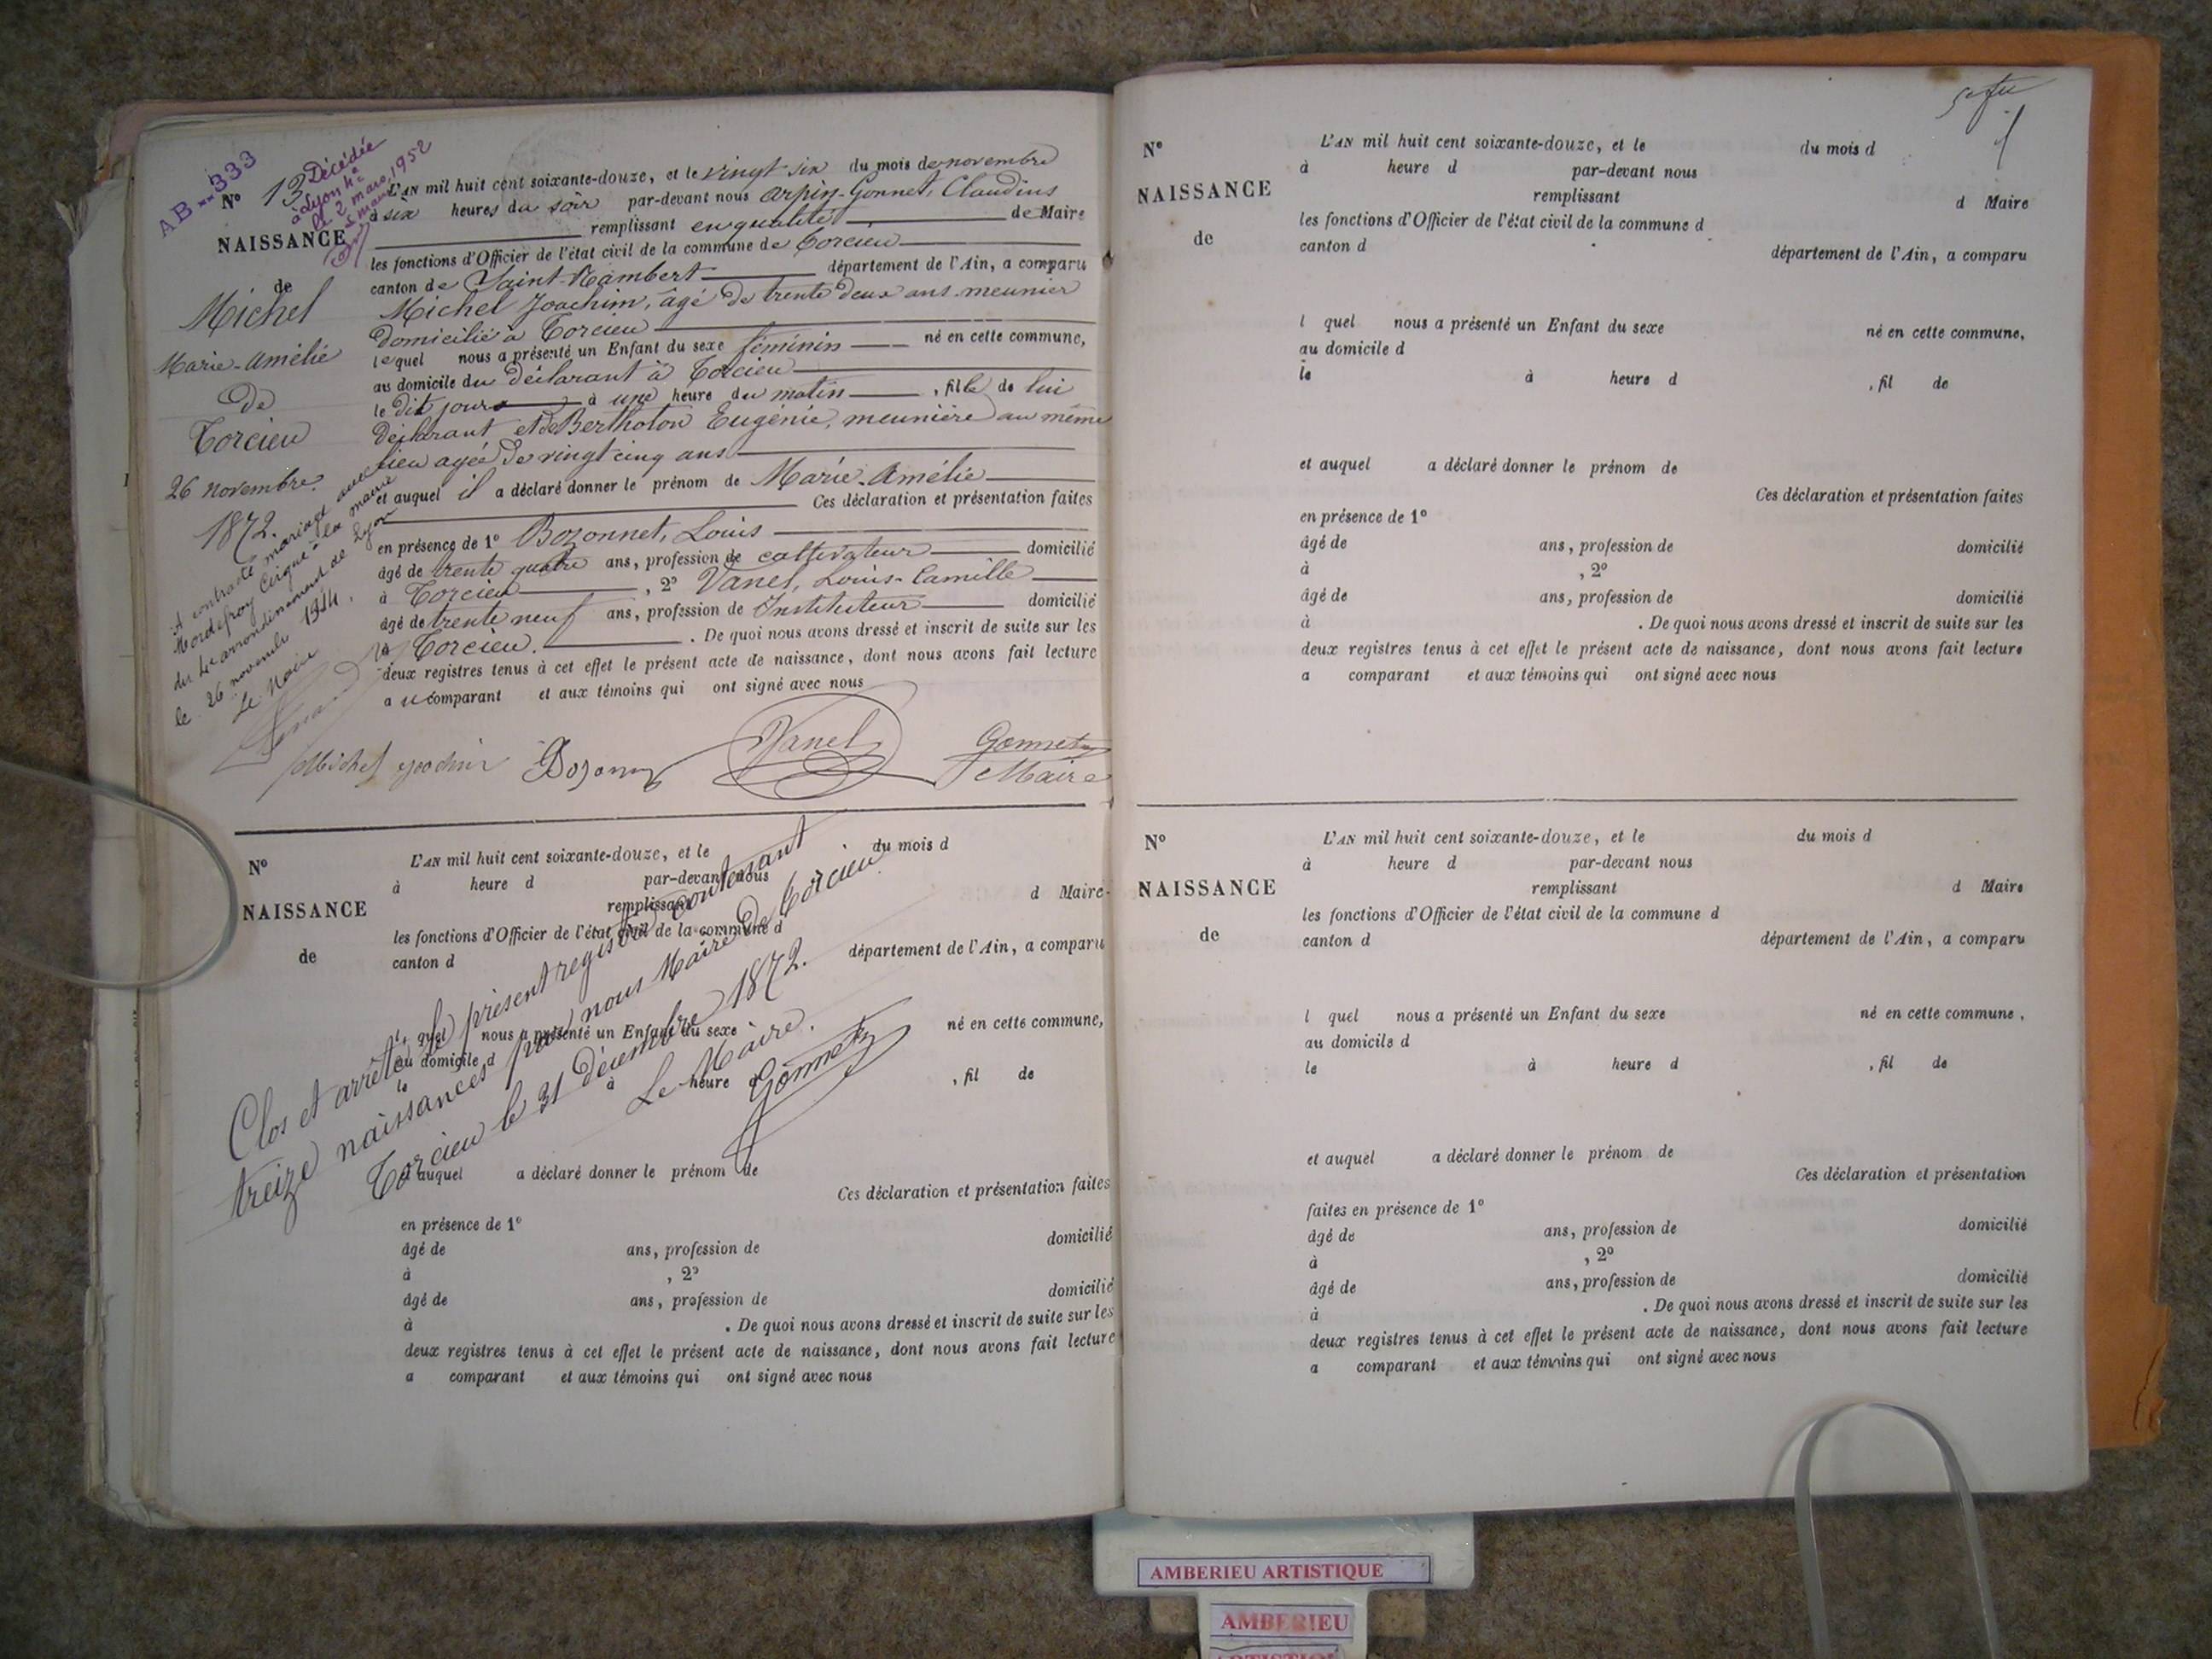 AB--333
Nº 13
Décédée
à Lyon 4e
le 2 mars 1952
NAISSANCE
de
Michel
Marie-Amélie
De
Torcieu
26 novembre
1872.
A contracté mariage avec
à la mairie
du 4e arrondissement de Lyon
le 26 novembre 1914.
Le Maire
L'AN mil huit cent soixante-douze, et le vingt six du mois de novembre
à six heures du soir par-devant nous Arpin-Gonnet, Claudius
remplissant en qualité de Maire
les fonctions d'Officier de l'état civil de la commune de Torcieu
canton de Saint-Rambert département de l'Ain, a comparu
Michel Joachim, âgé de trente deux ans meunier
domicilié à Torcieu
lequel nous a présenté un Enfant du sexe féminin né en cette commune,
au domicile du déclarant à Torcieu
le dit jour à une heure du matin, fille de lui
déclarant et de Bertholon Eugénie, meunière au même
lieu agée de vingt cinq ans
et auquel il a déclaré donner le prénom de Marie-Amélie
Ces déclaration et présentation faites
en présence de 1º Bozonnet, Louis
âgé de trente quatre ans, profession de cultivateur domicilié
à Torcieu, 2º Vanel, Louis-Camille
âgé de trente neuf ans, profession de Instituteur domicilié
à Torcieu. De quoi nous avons dressé et inscrit de suite sur les
deux registres tenus à cet effet le présent acte de naissance, dont nous avons fait lecture
au comparant et aux témoins qui ont signé avec nous
Michel Joachim Vanel Gonnet
Maire
Nº
NAISSANCE
de
L'AN mil huit cent soixante-douze, et le du mois d
à heure d par-devant nous
remplissant d Maire
les fonctions d'Officier de l'état civil de la commune d
canton d département de l'Ain, a comparu
l quel nous a présenté un Enfant du sexe né en cette commune,
au domicile d
le à heure d , fil de
et auquel a déclaré donner le prénom de
Ces déclaration et présentation faites
en présence de 1º
âgé de ans, profession de domicilié
à , 2º
âgé de ans, profession de domicilié
à . De quoi nous avons dressé et inscrit de suite sur les
deux registres tenus à cet effet le présent acte de naissance, dont nous avons fait lecture
a comparant et aux témoins qui ont signé avec nous
Clos et arrêté le présent registre contenant
treize naissances par nous Maire de Torcieu
Torcieu le 31 décembre 1872.
Le Maire.
Gonnet
Nº
NAISSANCE
de
L'AN mil huit cent soixante-douze, et le du mois d
à heure d par-devant nous
remplissant d Maire
les fonctions d'Officier de l'état civil de la commune d
canton d département de l'Ain, a comparu
l quel nous a présenté un Enfant du sexe né en cette commune,
au domicile d
le à heure d , fil de
et auquel a déclaré donner le prénom de
Ces déclaration et présentation faites
en présence de 1º
âgé de ans, profession de domicilié
à , 2º
âgé de ans, profession de domicilié
à . De quoi nous avons dressé et inscrit de suite sur les
deux registres tenus à cet effet le présent acte de naissance, dont nous avons fait lecture
a comparant et aux témoins qui ont signé avec nous
Nº
NAISSANCE
de
L'AN mil huit cent soixante-douze, et le du mois d
à heure d par-devant nous
remplissant d Maire
les fonctions d'Officier de l'état civil de la commune d
canton d département de l'Ain, a comparu
l quel nous a présenté un Enfant du sexe né en cette commune,
au domicile d
le à heure d , fil de
et auquel a déclaré donner le prénom de
Ces déclaration et présentation
faites en présence de 1º
âgé de ans, profession de domicilié
à , 2º
âgé de ans, profession de domicilié
à . De quoi nous avons dressé et inscrit de suite sur les
deux registres tenus à cet effet le présent acte de naissance, dont nous avons fait lecture
a comparant et aux témoins qui ont signé avec nous
AMBERIEU ARTISTIQUE
AMBERIEU
ARTISTIQUE